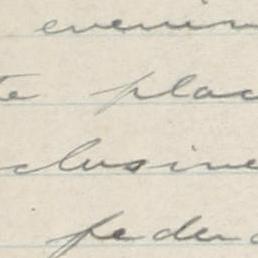 evenin
te plac
clusive
federa